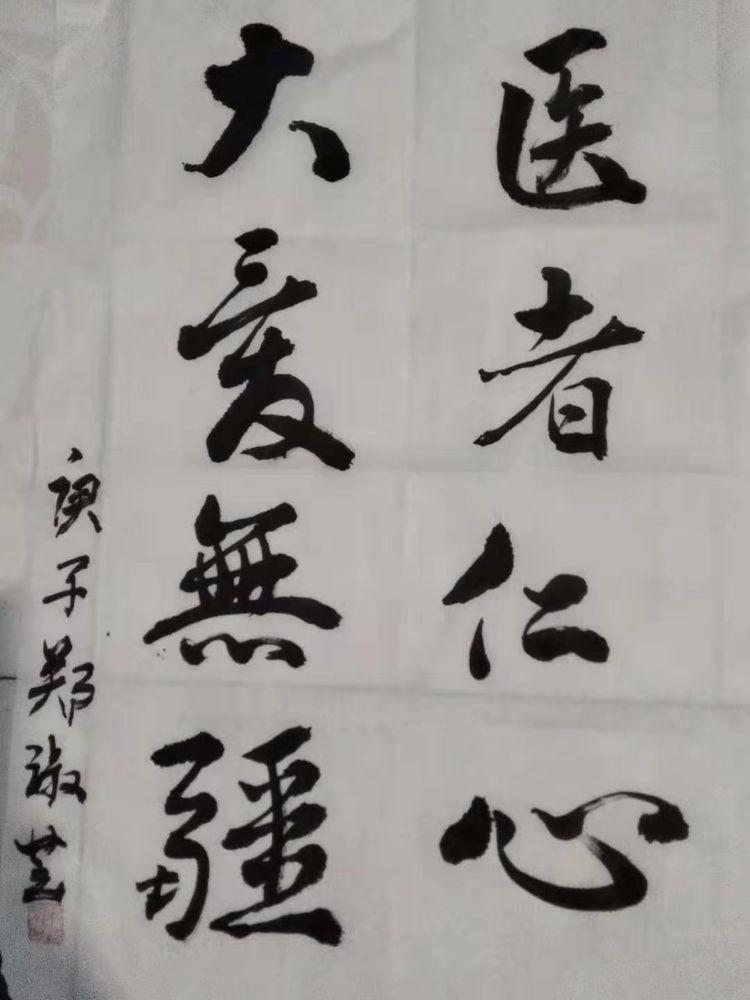 医者仁心
大爱無疆
庚子郑淑芝